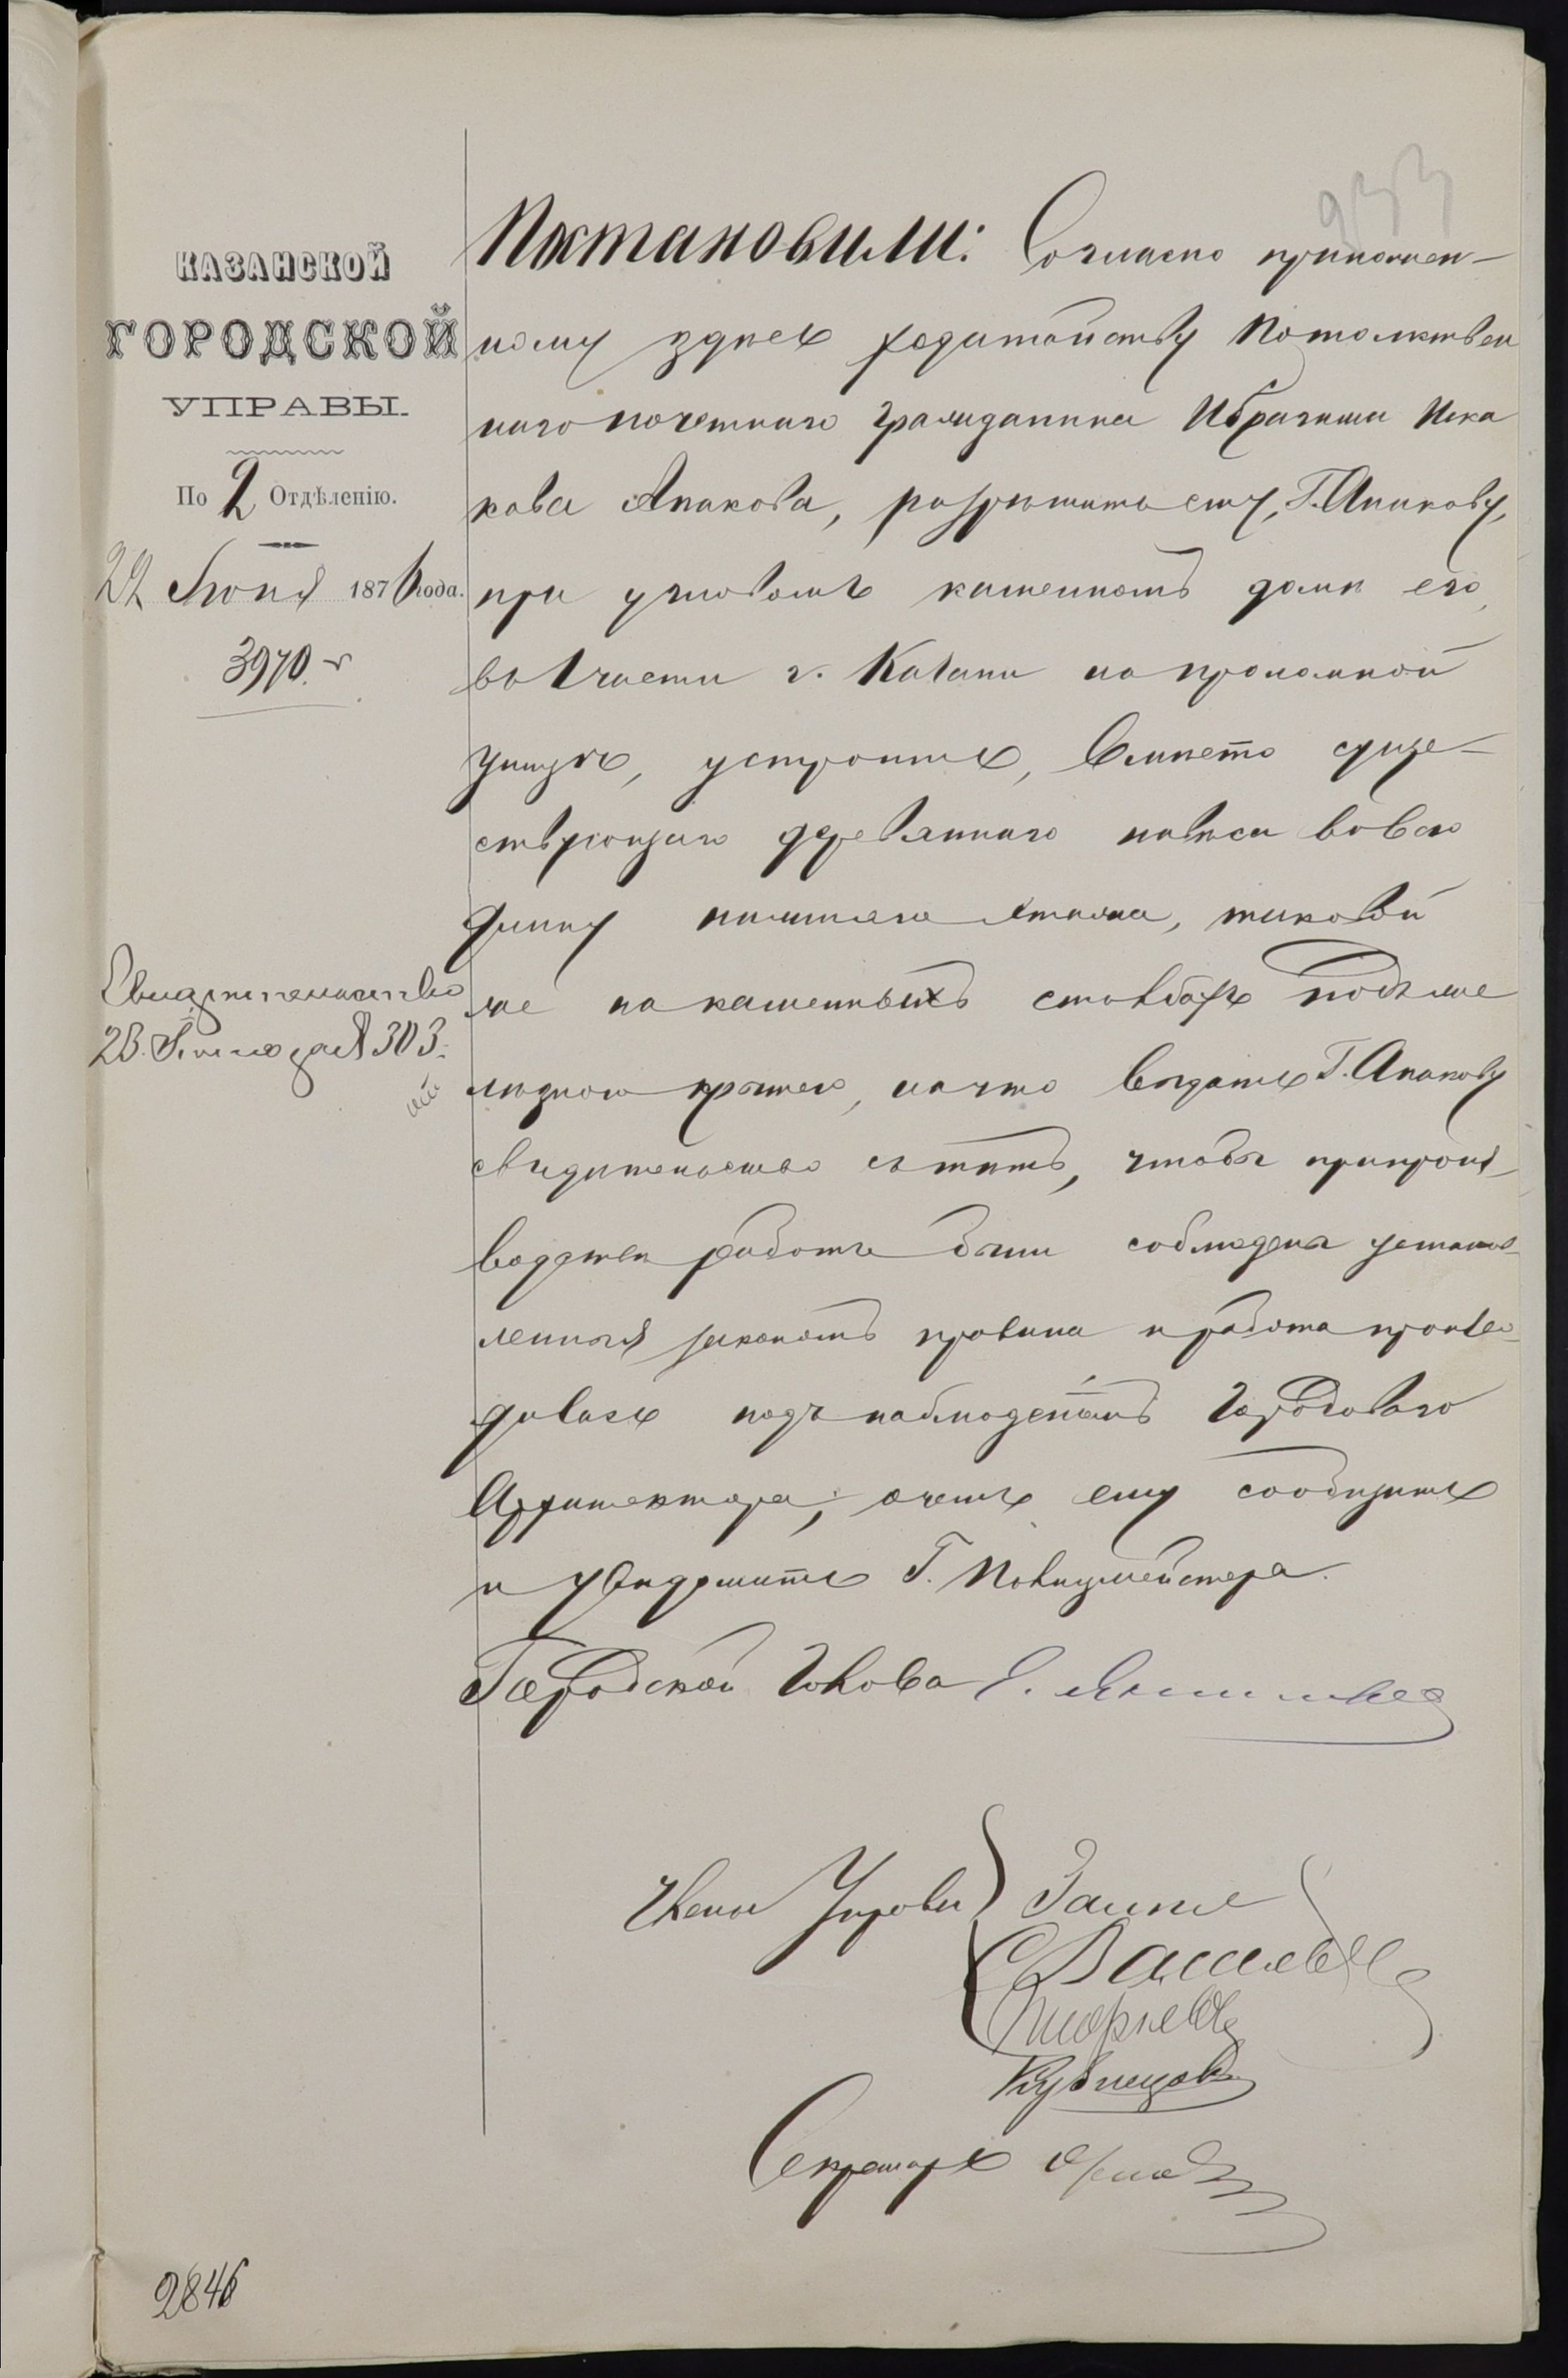 КАЗАНСКОЙ
ГОРОДСКОЙ
УПРАВЫ.
По 2 Отдѣленію.
22 Іюня 1876 года.
3970.
Свидѣтельство
23 Іюня за № 303.
Постановили: Согласно приложен-
ному здѣсь ходатайству Потомствен
наго почетнаго гражданина Ибрагима Иска
кова Апакова, разрѣшить ему, Г. Апакову,
при угловомъ каменномъ домѣ его,
въ 1 части г. Казани на проломной
улицѣ, устроить, вмѣсто суще-
ствующаго деревяннаго навѣса во всю
длину нижняго этажа, таковой
же на каменныхъ столбахъ подъ же
лѣзною крышею, на что выдать Г. Апакову
свидѣтельство съ тѣмъ, чтобы при произ-
водствѣ работъ были соблюдены установ-
ленныя закономъ правила и работа произво-
дилась подъ наблюденіемъ Городоваго
Архитектора, о чемъ ему сообщить
и увѣдомить Г. Полицмейстера.
Городской Голова Э. Янишевскій
Члены Управы
С Васильевъ
Кузнецовъ
Секретарь
2846